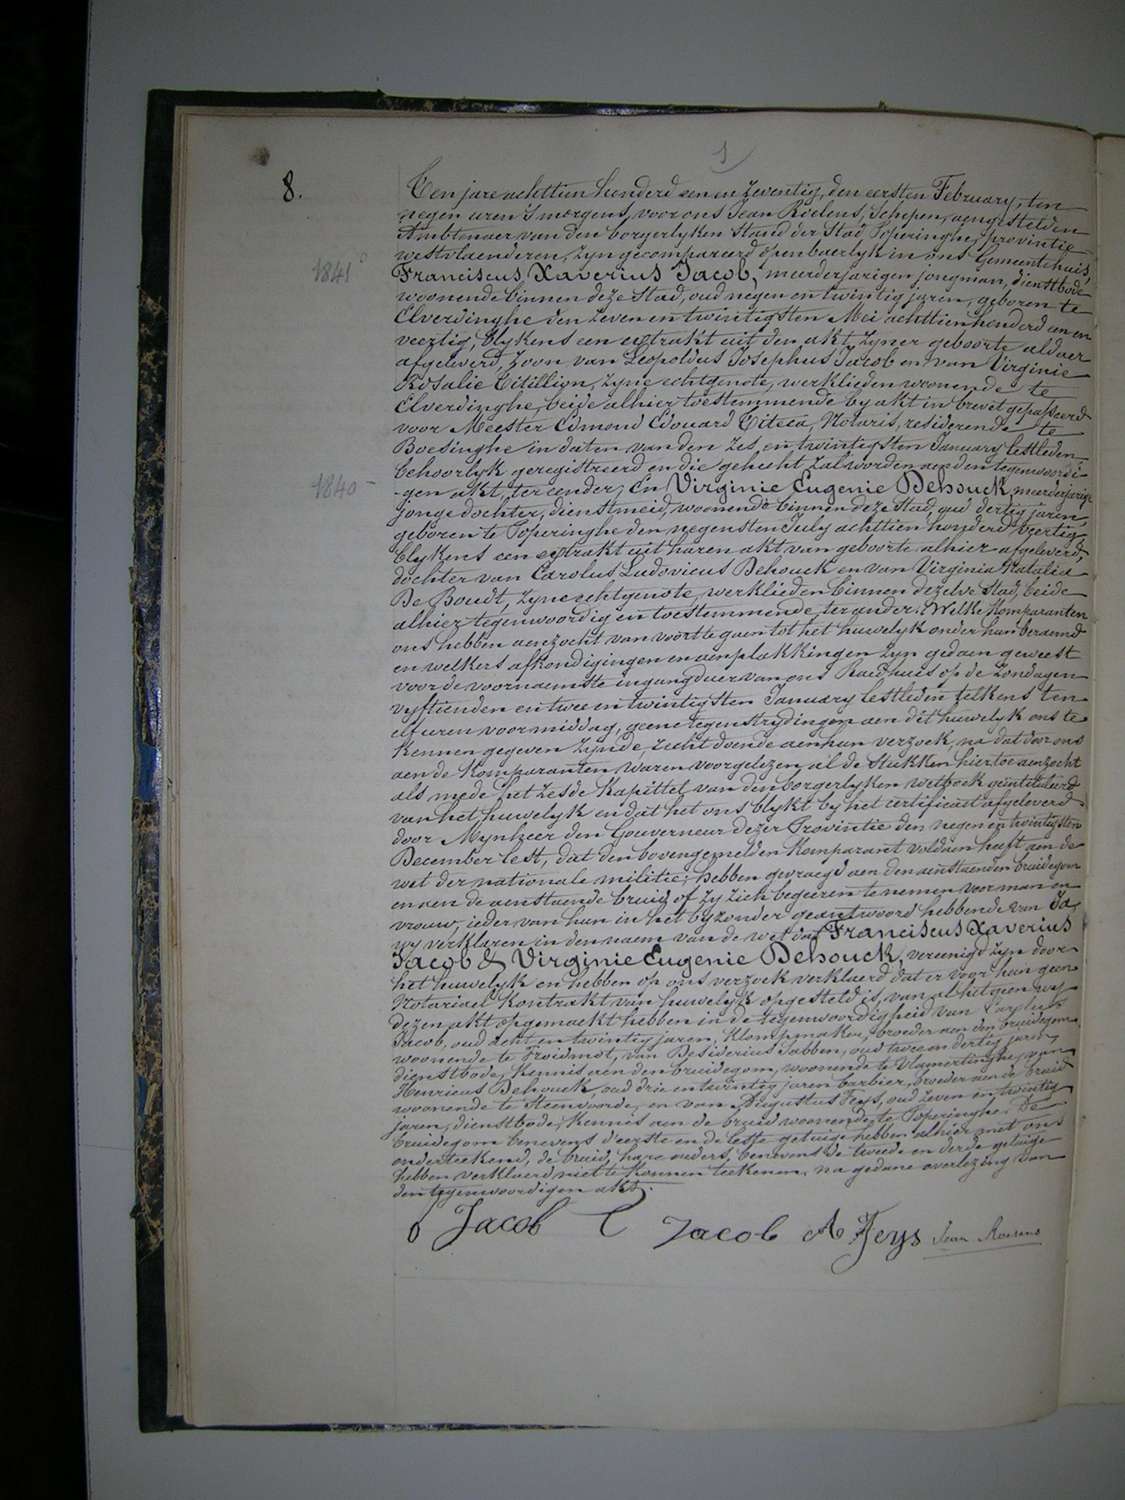 1
8.
Ten jare achttien honderd een en zeventig, den eersten February, ten
negen uren 's morgens, voor ons Jean Roelens, Schepen, aengestelden
Ambtenaer van den borgerlyken stand der Stad Poperinghe, provintie
westvlaenderen, zyn gecompareerd openbaerlyk in ons Gemeentehuis,
1841
Franciscus Xaverius Jacob, meerderjarigen jongman, dienstbode
woonende binnen deze stad, oud negen en twintig jaren, geboren te
Elverdinghe den zeven en twintigsten Mei achttien honderd een en
veertig, blykens een extrakt uit den akt zyner geboorte aldaer
afgeleverd, zoon van Leopoldus Josephus Jacob en van Virginie
Rosalie Titillion, zyne echtgenote, werklieden woonende te
Elverdinghe, beide alhier toestemmende by akt in brevet gepasseerd
voor Meester Edmond Edouard Titeca, Notaris, residerende te
Boesinghe in daten van den zes en twintigsten January lestleden
behoorlyk geregistreerd en die gehecht zal worden aen den tegenwoordi-
1840
gen akt, ter eender; En Virginie Eugenie Dehouck, meerderjarige
jonge dochter, dienstmeid, woonende binnen deze Stad, oud dertig jaren,
geboren te Poperinghe den negensten July achttien honderd veertig,
blykens een extrakt uit haren akt van geboorte alhier afgeleverd,
dochter van Carolus Ludovicus Dehouck en van Virginia Natalia
De Boudt, zyne echtgenote, werklieden binnen dezelve Stad, beide
alhier tegenwoordig en toestemmende, ter ander. Welke Komparanten
ons hebben aenzocht van voort te gaen tot het huwelyk onder hun beraemd
en welkers afkondigingen en aenplakkingen zyn gedaen geweest
voor de voornaemste ingangduer van ons Raedhuis op de zondagen
vyftienden en twee en twintigsten January lestleden telkens ten
elf uren voormiddag, geene tegenstrydingen aen dit huwelyk ons te
Kennen gegeven zynde, recht doende aen hun verzoek, na dat door ons
aen de Komparanten waren voorgelezen al de stukken hiertoe aenzocht
als mede het zesde Kapittel van den borgerlyken wetboek geintituleerd
van het huwelyk en dat het ons blykt by het certificaat afgeleverd
door Mynheer den Gouverneur dezer Provintie den negen en twintigsten
December lest, dat den bovengemelden Komparant voldaen heeft aen de
wet der nationale militie; hebben gevraegd aen den aenstaenden bruidegom
en aen de aenstaende bruid of zy zich begeeren te nemen voor man en
vrouw, ieder van hun in het byzonder geantwoord hebbende van Ja,
wy verklaren in den naem van de wet dat Franciscus Xaverius
Jacob & Virginie Eugenie Dehouck, vereenigd zyn door
het huwelyk en hebben op ons verzoek verklaerd dat er voor hun geen
Notariael Kontrakt van huwelyk opgesteld is, van al het geen wy
dezen akt opgemaekt hebben in de tegenwoordigheid van
Jacob, oud acht en twintig jaren, Klompmaker, broeder aen den bruidegom
woonende te Proidmot, van Desiderius Dabben, oud twee en dertig jaren,
dienstbode, Kennis aen den bruidegom, woonende te Vlamertinghe, van
Henricus Dehouck, oud drie en twintig jaren barbier, broeder aen de bruid
woonende te Steenvoorde, en van Augustus Feys, oud zeven en twintig
jaren, dienstbode, Kennis aen de bruid woonende te Poperinghe. De
bruidegom benevens d'eerste en de leste getuige hebben alhier met ons
onderteekend, de bruid, hare ouders, benevens de tweede en derde getuige
hebben verklaerd niet te konnen teekenen, na gedane overlezing van
den tegenwoordigen akt.
Jacob C Jacob A Feys Jean Roelens